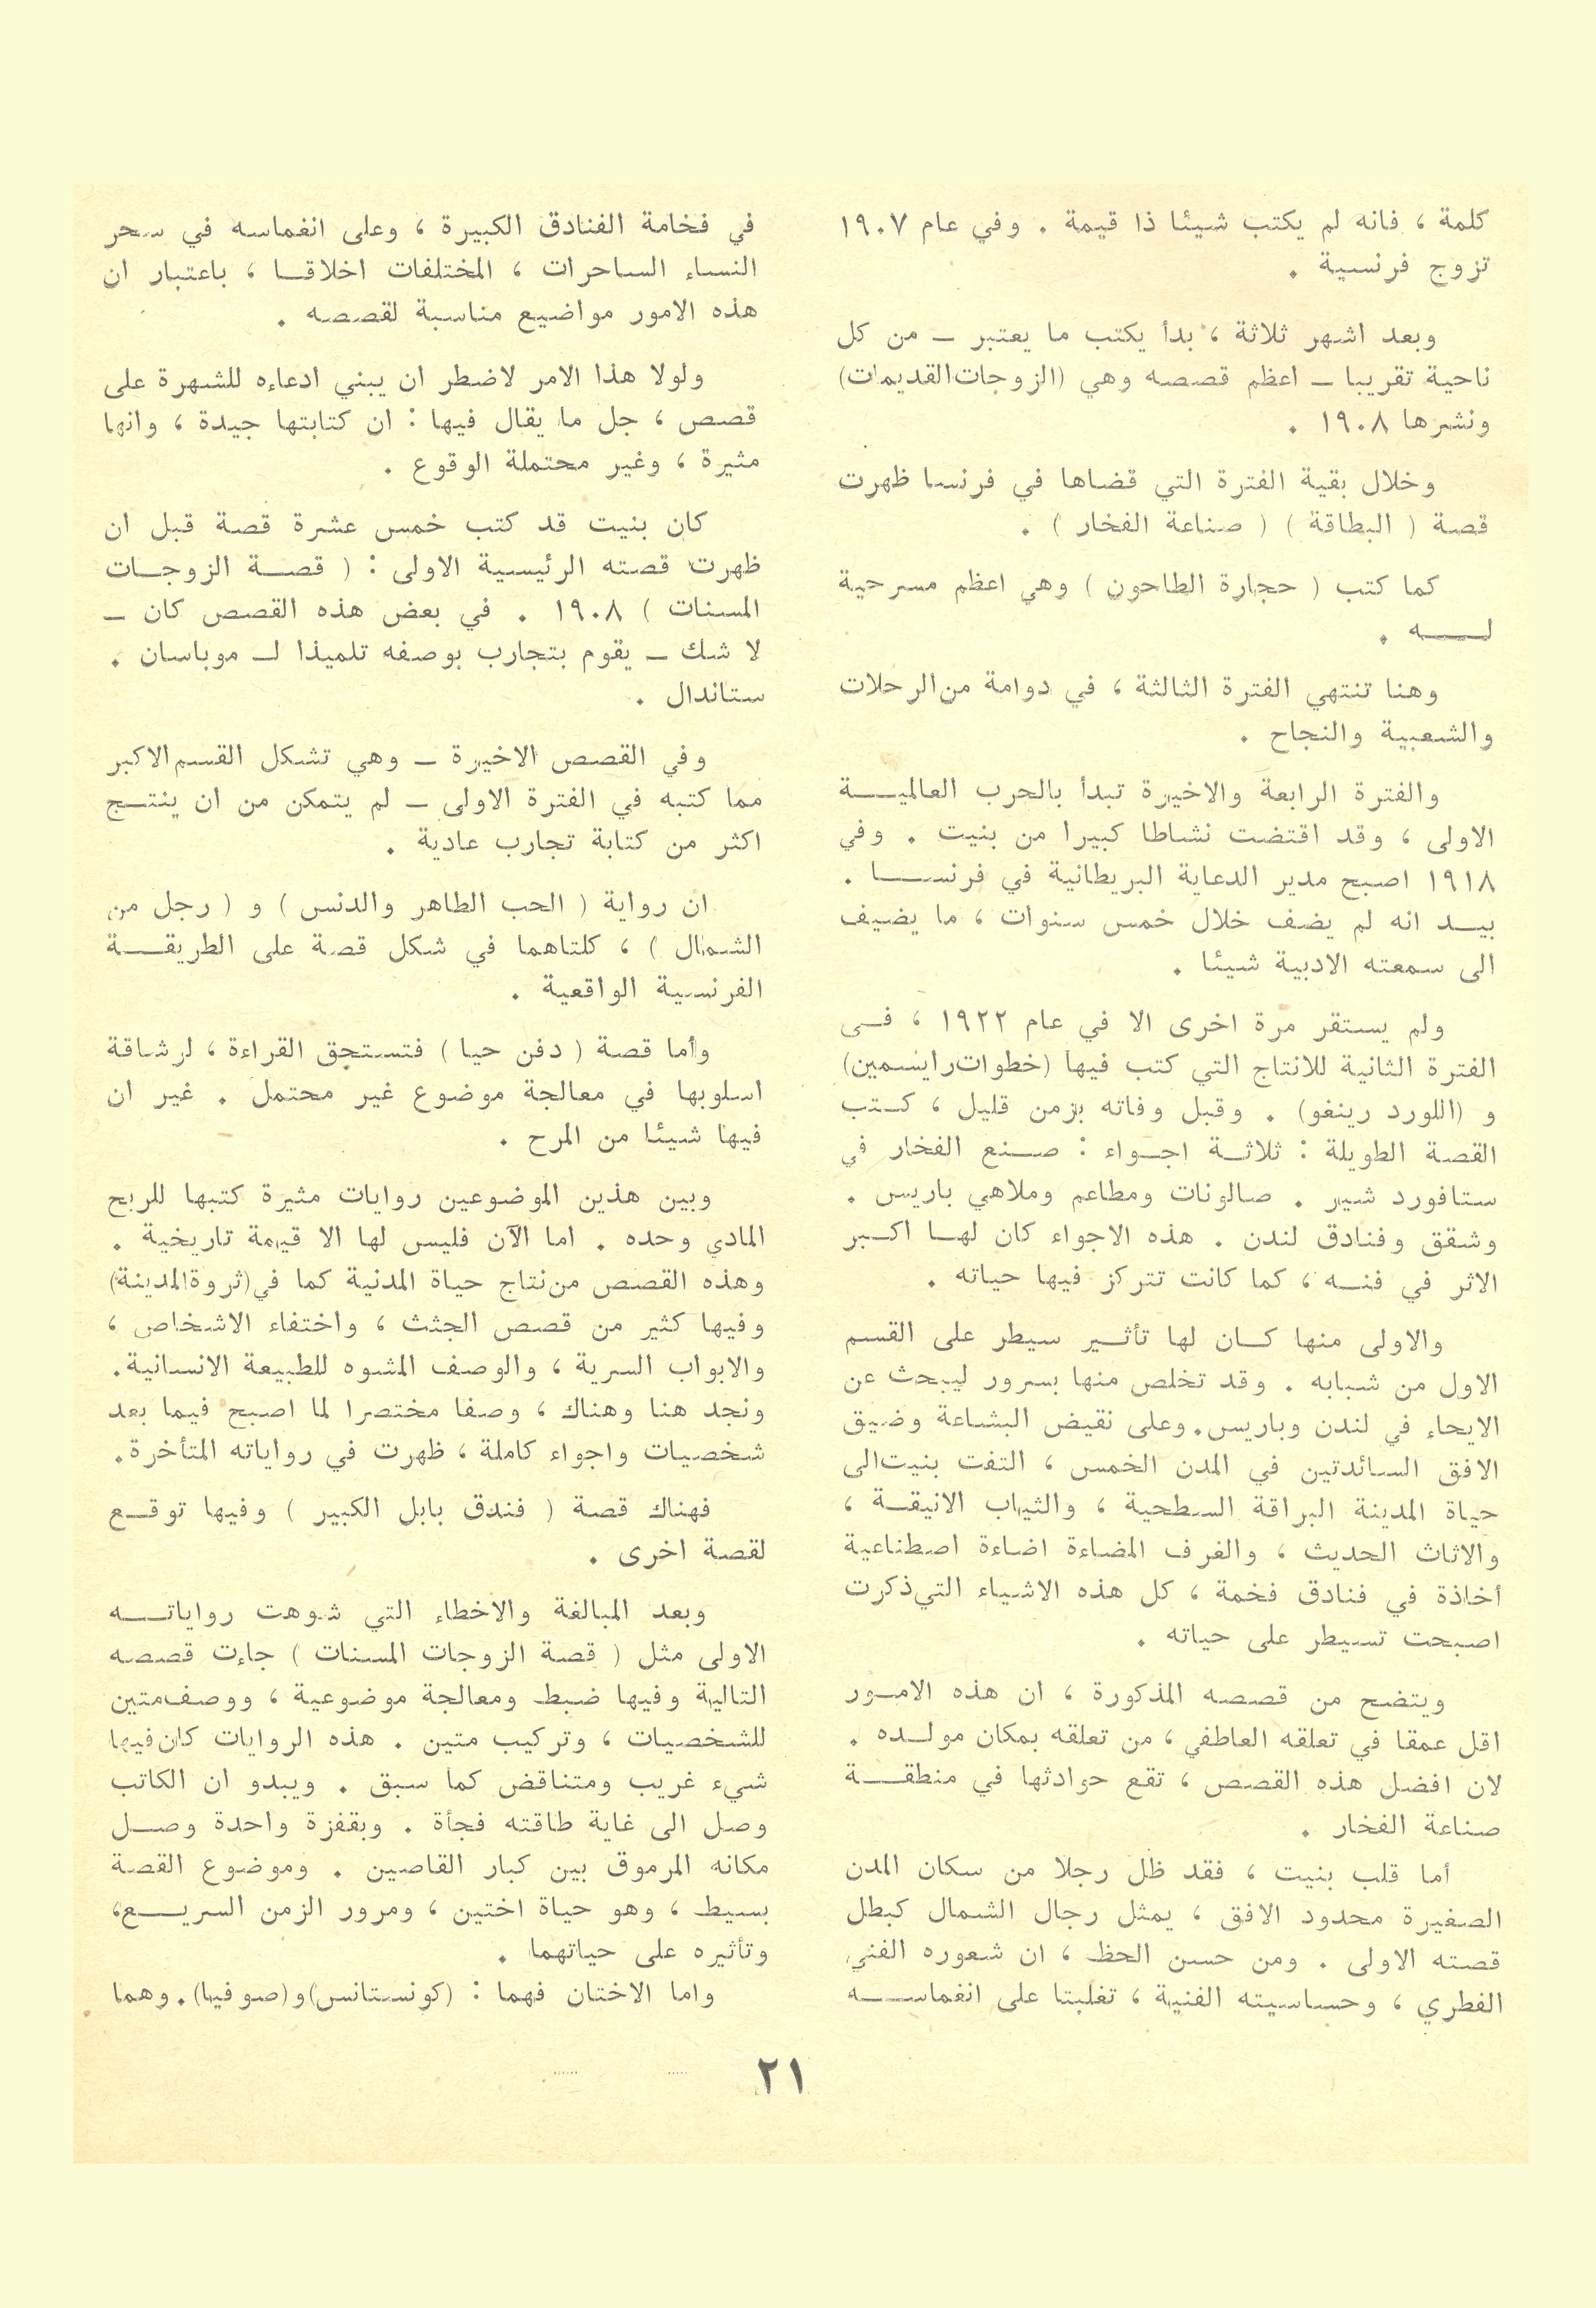 كلمة ، فانه لم يكتب شيئا ذا قيمة . وفي عام ١٩٠٧
تزوج فرنسية .
وبعد اشهر ثلاثة ، بدأ يكتب ما يعتبر ــ من كل
ناحية تقريبا ــ اعظم قصصه وهي (الزوجات القديمات)
ونشرها ١٩٠٨ .
وخلال بقية الفترة التي قضاها في فرنسا ظهرت
قصة ( البطاقة ) ( صناعة الفخار ) .
كما كتب ( حجارة الطاحون ) وهي اعظم مسرحية
لـــه .
وهنا تنتهي الفترة الثالثة ، في دوامة من الرحلات
والشعبية والنجاح .
والفترة الرابعة والاخيرة تبدأ بالحرب العالميـــة
الاولى ، وقد اقتضت نشاطا كبيرا من بنيت . وفي
١٩١٨ اصبح مدير الدعاية البريطانية في فرنســـا .
بيـــد انه لم يضف خلال خمس سنوات ، ما يضيف
الى سمعته الادبية شيئا .
ولم يستقر مرة اخرى الا في عام ١٩٢٢ ، فـــى
الفترة الثانية للانتاج التي كتب فيها (خطوات رايسمين)
و (اللورد رينغو) . وقبل وفاته بزمن قليل ، كـتب
القصة الطويلة : ثلاثـــة اجـــواء : صـــنع الفخار في
ستافورد شير . صالونات ومطاعم وملاهي باريس .
وشقق وفنادق لندن . هذه الاجواء كان لهـــا اكـــبر
الاثر في فنـــه ، كما كانت تتركز فيها حياته .
والاولى منها كـــان لها تأثـــير سيطر على القسم
الاول من شبابه . وقد تخلص منها بسرور ليبحث عن
الايحاء في لندن وباريس. وعلى نقيض البشاعة وضيق
الافق السائدتين في المدن الخمس ، التفت بنيت الى
حياة المدينة البراقة السطحية ، والثياب الانيقـــة ،
والاثاث الحديث ، والغرف المضاءة اضاءة اصطناعية
أخاذة في فنادق فخمة ، كل هذه الاشياء التي ذكرت
اصبحت تسيطر على حياته .
ويتضح من قصصه المذكورة ، ان هذه الامـــور
اقل عمقا في تعلقه العاطفي ، من تعلقه بمكان مولـــده .
لان افضل هذه القصص ، تقع حوادثها في منطقـــة
صناعة الفخار .
أما قلب بنيت ، فقد ظل رجلا من سكان المدن
الصغيرة محدود الافق ، يمثل رجال الشمال كبطل
قصته الاولى . ومن حسن الحظ ، ان شعوره الفني
الفطري ، وحساسيته الفنية ، تغلبتا على انغماســـه
في فخامة الفنادق الكبيرة ، وعلى انغماسه في سحر
النساء الساحرات ، المختلفات اخلاقـــا ، باعتبار ان
هذه الامور مواضيع مناسبة لقصصه .
ولولا هذا الامر لاضطر ان يبني ادعاءه للشهرة على
قصص ، جل ما يقال فيها : ان كتابتها جيدة ، وانها
مثيرة ، وغير محتملة الوقوع .
كان بنيت قد كتب خمس عشرة قصة قبل ان
ظهرت قصته الرئيسية الاولى : ( قصـــة الزوجـــات
المسنات ) ١٩٠٨ . في بعض هذه القصص كان ــ
لا شك ــ يقوم بتجارب بوصفه تلميذا لــ موباسان .
ستاندال .
وفي القصص الاخيرة ــ وهي تشكل القسم الاكبر
مما كتبه في الفترة الاولى ــ لم يتمكن من ان ينتـــج
اكثر من كتابة تجارب عادية .
ان رواية ( الحب الطاهر والدنس ) و ( رجل من
الشمال ) ، كلتاهما في شكل قصة على الطريقـــة
الفرنسية الواقعية .
وأما قصة ( دفن حيا ) فتستحق القراءة ، لرشاقة
اسلوبها في معالجة موضوع غير محتمل . غير ان
فيها شيئا من المرح .
وبين هذين الموضوعين روايات مثيرة كتبها للربح
المادي وحده . اما الآن فليس لها الا قيمة تاريخية .
وهذه القصص من نتاج حياة المدنية كما في (ثروة المدينة)
وفيها كثير من قصص الجثث ، واختفاء الاشخاص ،
والابواب السرية ، والوصف المشوه للطبيعة الانسانية.
ونجد هنا وهناك ، وصفا مختصرا لما اصبح فيما بعد
شخصيات واجواء كاملة ، ظهرت في رواياته المتأخرة.
فهناك قصة ( فندق بابل الكبير ) وفيها توقـــع
لقصة اخرى .
وبعد المبالغة والاخطاء التي شوهت رواياتـــه
الاولى مثل ( قصة الزوجات المسنات ) جاءت قصصه
التالية وفيها ضبط ومعالجة موضوعية ، ووصف متين
للشخصيات ، وتركيب متين . هذه الروايات كان فيها
شيء غريب ومتناقض كما سبق . ويبدو ان الكاتب
وصل الى غاية طاقته فجأة . وبقفزة واحدة وصـــل
مكانه المرموق بين كبار القاصين . وموضوع القصة
بسيط ، وهو حياة اختين ، ومرور الزمن السريـــع،
وتأثيره على حياتهما .
واما الاختان فهما : (كونستانس) و(صوفيا). وهما
٢١